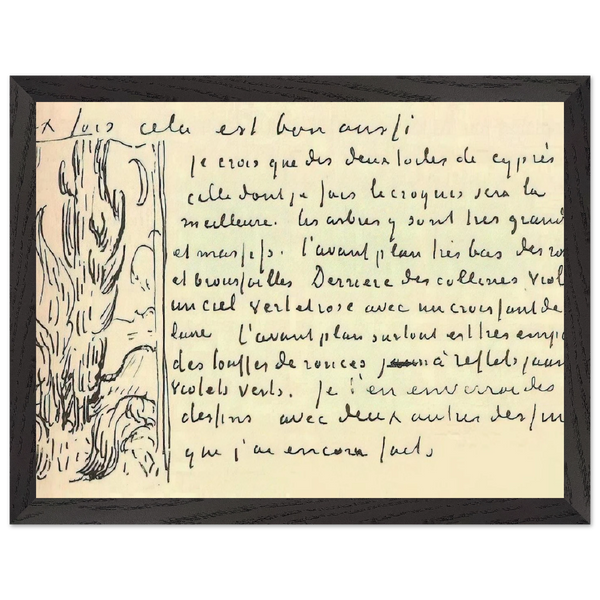 x fois cela est bon aussi
je crois que des deux toiles de cyprès
celle dont je fais le croquis sera la
meilleure. les arbres y sont très grand
et massifs. l'avant plan très bas des ro
et broussailles Derriere des collines viol
un ciel vert et rose avec un croissant de
lune L'avant plan surtout est très emp
des touffes de ronces à reflets jaun
violets verts. Je t'en enverrai des
dessins avec deux autres dessin
que j'ai encore faits